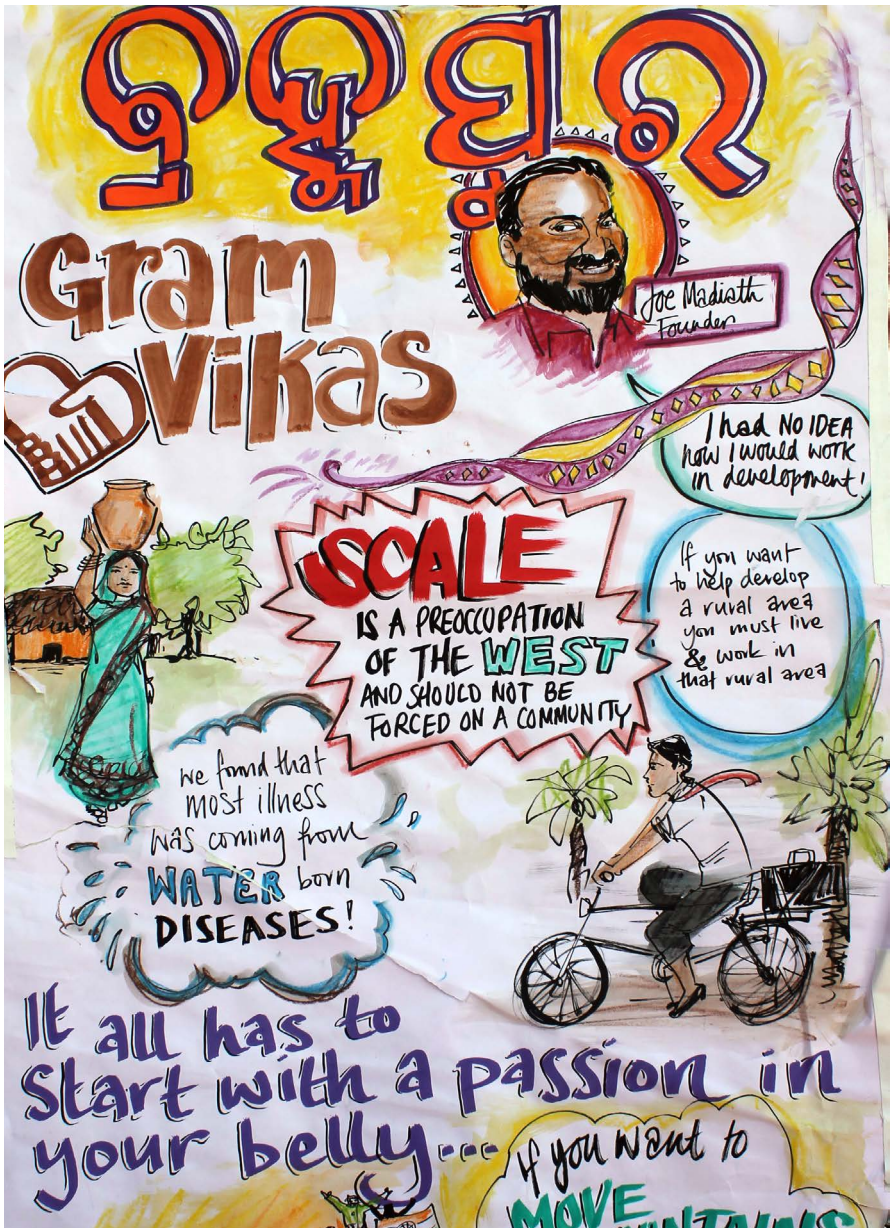 ବ୍ରହ୍ମପୁର
Gram
Vikas
Joe Madiath
Founder
I had NO IDEA
how I would work
in development!
SCALE
IS A PREOCCUPATION
OF THE WEST
AND SHOULD NOT BE
FORCED ON A COMMUNITY
If you want
to help develop
a rural area
you must live
& work in
that rural area
we found that
most illness
was coming from
WATER born
DISEASES!
It all has to
start with a passion in
your belly...
if you want to
MOVE